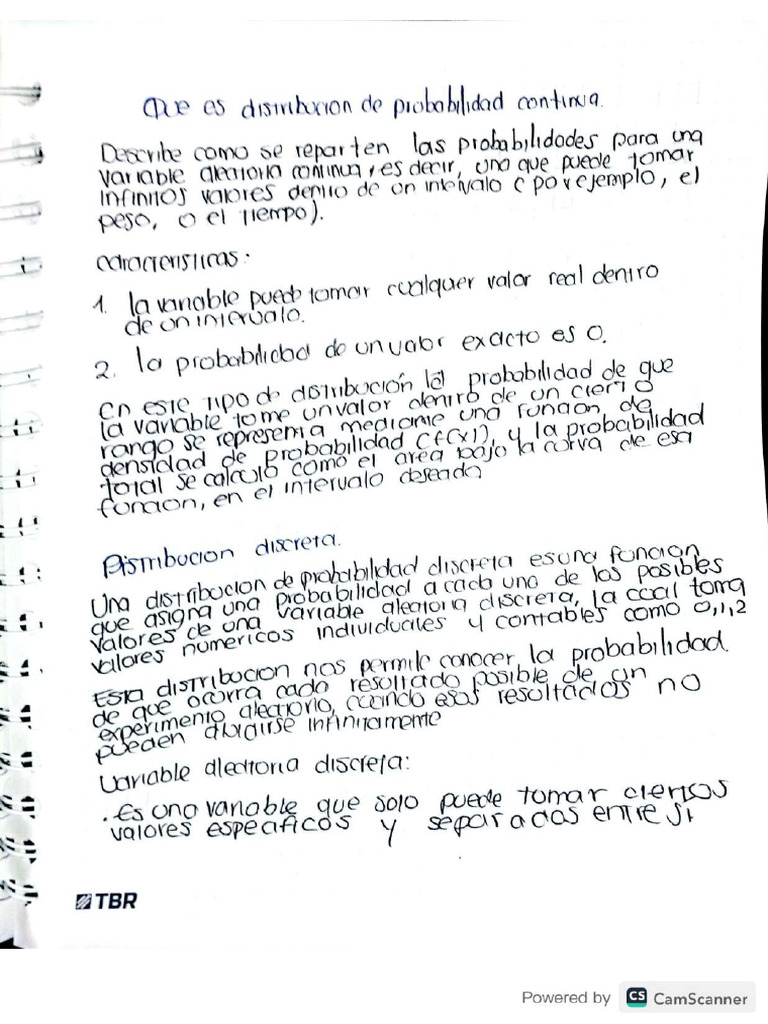 Que es distribucion de probabilidad continua.
Describe como se reparten las probabilidades para una
variable aleatoria continua, es decir, una que puede tomar
infinitos valores dentro de un intervalo (por ejemplo, el
peso, o el tiempo).
características:
1. la variable puede tomar cualquer valor real dentro
de un intervalo.
2. la probabilidad de un valor exacto es 0.
En este tipo de distribución la probabilidad de que
la variable tome un valor dentro de un cierto
rango se representa mediante una funcion de
densidad de probabilidad (f(x)), y la probabilidad
total se calculo como el area bajo la curva de esa
funcion, en el intervalo deseado
Distribucion discreta.
Una distribucion de probabilidad discreta es una funcion
que asigna una probabilidad a cada uno de los posibles
valores de una variable aleatoria discreta, la cual toma
valores numericos individuales y contables como 0,1,2
Esta distribucion nos permite conocer la probabilidad
de que ocurra cada resultado posible de un
experimento aleatorio, cuando esos resultados no
pueden dividirse infinitamente
Variable aleatoria discreta:
. Es una variable que solo puede tomar ciertos
valores especificos y separados entre si
TBR
Powered by CS CamScanner